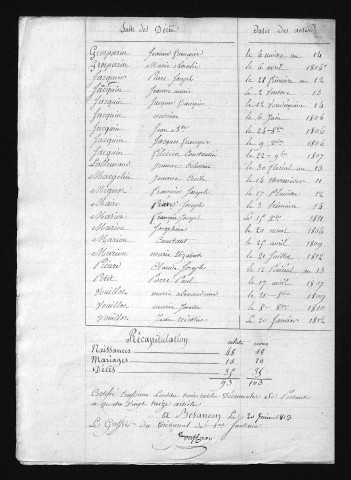 Suite des Décès Dates des actes
Grosperrin Jeanne françoise le 6 nivose an 14
Grosperrin Marie Rosalie le 6 avril 1806
Jacquier Pierre Joseph le 28 frimaire an 12
Jacquin Jeanne marie le 2 ventose 13
Jacquin Jacques françois le 12 Vendémiaire 14
Jacquin le 6 Juin 1806
Jacquin Jean Bte le 24 8bre 1806
Jacquin Jacques françois le 9 1806
Jacquin Félicien Constantin le 22 9bre 1807
Lallemand Jeanne le 30 floréal an 13
Margelin Jeanne Cécile le 14 messidor 11
Mignot François Joseph le 17 12
Maire Pierre Joseph le 3 frimaire 14
Marion françois Joseph le 15 1811
Marion Josephine le 20 août 1814
Marion Constant le 25 avril 1809
Marion marie Elizabeth le 21 Juillet 1812
Picard Claude Joseph le 12 floréal an 13
Petit Pierre Paul le 17 août 1807
Vouillot marie alexandrine le 21 8bre 1809
Vouillot marie Josette le 8 8bre 1810
Vouillot Jean nicolas le 20 Janvier 1812
Récapitulation actes noms
Naissances 48 48
Mariages 10 20
Décès 35 36
93 103
Certifié Conforme La dite table Décennale de Portant
a quatre Vingt treize articles
a Besançon Le 20 Juin 1813
Le Greffier du Tribunal de 1ere Instance